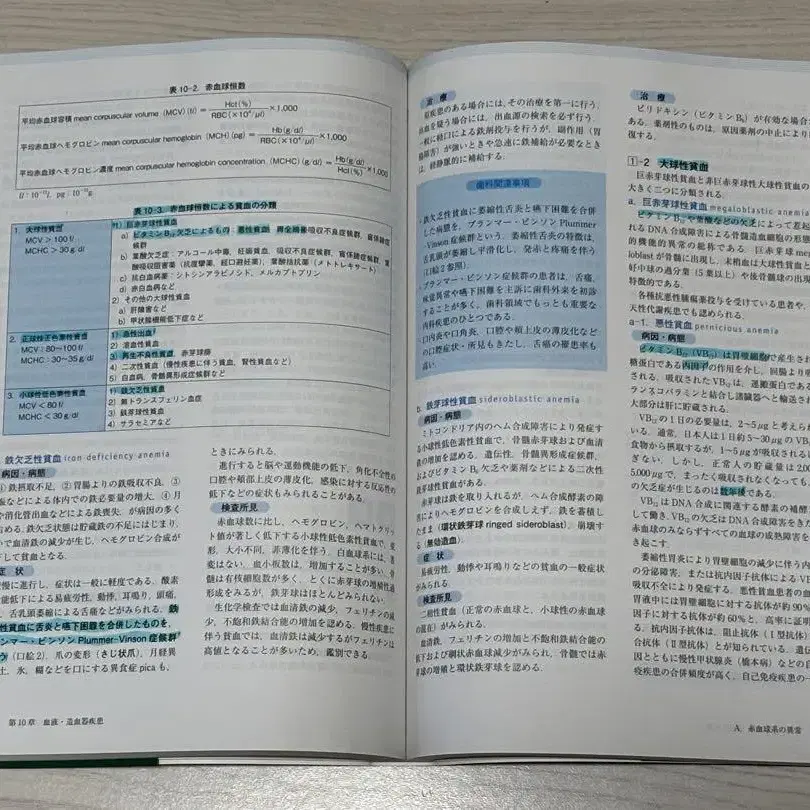 表 10-2. 赤血球恒数
平均赤血球容積 mean corpuscular volume (MCV) (fl) = Hct(%) / RBC(×10⁴/μl) ×1,000
平均赤血球ヘモグロビン mean corpuscular hemoglobin (MCH) (pg) = Hb(g/dl) / RBC(×10⁴/μl) ×1,000
平均赤血球ヘモグロビン濃度 mean corpuscular hemoglobin concentration (MCHC) (g/dl) = Hb(g/dl) / Hct(%) ×1,000
表 10-3. 赤血球恒数による貧血の分類
1. 大球性貧血
MCV > 100 fl
MCHC > 30 g/dl
1) 巨赤芽球性貧血
a) ビタミン B₁₂ 欠乏によるもの:悪性貧血,胃全摘者,吸収不良症候群,盲係蹄症
候群
b) 葉酸欠乏症:アルコール中毒,妊娠貧血,吸収不良症候群,盲係蹄症候群,葉
酸吸収阻害薬(抗痙攣薬,経口避妊薬),葉酸拮抗薬(メトトレキサート)
c) 抗白血病薬:シトシンアラビノシド,メルカプトプリン
d) 赤白血病など
2) その他の大球性貧血
a) 肝障害など
b) 甲状腺機能低下症など
2. 正球性正色素性貧血
MCV:80~100 fl
MCHC:30~35 g/dl
1) 急性出血
2) 溶血性貧血
3) 再生不良性貧血,赤芽球癆
4) 二次性貧血(慢性疾患に伴う貧血,腎性貧血など)
5) 白血病,骨髄異形成症候群など
3. 小球性低色素性貧血
MCV < 80 fl
MCHC < 30 g/dl
1) 鉄欠乏性貧血
2) 無トランスフェリン血症
3) 鉄芽球性貧血
4) サラセミアなど
鉄欠乏性貧血 iron deficiency anemia
病因・病態
①鉄摂取不足,②胃腸よりの鉄吸収不良,③
などによる体内での鉄必要量の増大,④月
や消化管出血などによる鉄喪失,が病因の多く
める.鉄欠乏状態は貯蔵鉄の不足にはじまり,
で血清鉄の減少が生じ,ヘモグロビン合成が
して貧血となる.
症 状
慢に進行し,症状は一般に軽度である.酸素
能低下による易疲労性,動悸,耳鳴り,頭痛,
,舌乳頭萎縮による舌痛などがみられる.鉄
性貧血に舌炎と嚥下困難を合併したものを,
ンマー・ビンソン Plummer-Vinson 症候群
う(口絵 2).爪の変形(さじ状爪),月経異
土,氷,糊などを口にする異食症 pica も,
ときにみられる.
進行すると脳や運動機能の低下,角化不全性
の口腔や頬部上皮の薄皮化,感染に対する反応性の
低下などの症状もみられることがある.
検査所見
赤血球数に比し,ヘモグロビン,ヘマトクリッ
ト値が著しく低下する小球性低色素性貧血で,変
形,大小不同,菲薄化を伴う.白血球系には,著
変はない.血小板数は,増加することが多い.骨
髄は有核細胞数が多く,とくに赤芽球の増殖性過
形成をみるが,鉄芽球はほとんどみられない.
生化学検査では血清鉄の減少,フェリチンの減
少,不飽和鉄結合能の増加をみる.慢性疾患に
伴う貧血では,血清鉄は減少するがフェリチンは
高値となることが多いため,鑑別できる.
第 10 章 血液・造血器疾患
治 療
原疾患のある場合には,その治療を第一に行う.
出血を疑う場合には,出血源の検索を必ず行う.
般に経口による鉄剤投与を行うが,副作用(胃
腸障害)が強いときや急速に鉄補給が必要なとき
は,経静脈的に補給する.
歯科関連事項
鉄欠乏性貧血に萎縮性舌炎と嚥下困難を合併
した病態を,プランマー・ビンソン Plummer
-Vinson 症候群という.萎縮性舌炎の特徴は,
舌乳頭が萎縮し平滑化し,発赤と疼痛を伴う
(口絵 2 参照).
プランマー・ビンソン症候群の患者は,舌痛,
味覚異常や嚥下困難を主訴に歯科外来を初診
することが多く,歯科領域でもっとも重要な
内科疾患のひとつである.
口内炎や口角炎,口腔や頬上皮の薄皮化など
の口腔症状・所見もきたし,舌癌の罹患率も
高い.
b. 鉄芽球性貧血 sideroblastic anemia
病因・病態
ミトコンドリア内のヘム合成障害により発症す
る小球性低色素性貧血で,骨髄赤芽球および血清
鉄の増加を認める.遺伝性,骨髄異形成症候群,
およびビタミン B₆ 欠乏や薬剤などによる二次性
鉄芽球性貧血がある.
赤芽球は鉄を取り入れるが,ヘム合成酵素の障
害によりヘモグロビンを合成しえず,鉄を蓄積し
たまま(環状鉄芽球 ringed sideroblast),崩壊す
る(無効造血).
症 状
易疲労性,動悸や耳鳴りなどの貧血の一般症状
がみられる.
検査所見
二相性貧血(正常の赤血球と,小球性の赤血球
の混在)がみられる.
血清鉄,フェリチンの増加と不飽和鉄結合能の
低下および網状赤血球減少がみられ,骨髄では赤
芽球の増殖と環状鉄芽球を認める.
治 療
ピリドキシン(ビタミン B₆)が有効な場合
ある.薬剤性のものは,原因薬剤の中止により
復する.
1-2 大球性貧血
巨赤芽球性貧血と非巨赤芽球性大球性貧血の
大きく二つに分類される.
a. 巨赤芽球性貧血 megaloblastic anemia
ビタミン B₁₂ や葉酸などの欠乏によって惹起
れる DNA 合成障害による骨髄造血細胞の形態
的機能的異常の総称である.巨赤芽球 mega
loblast が骨髄に出現し,末梢血は大球性貧血と
好中球の過分葉(5 葉以上)や後骨髄球の出現
特徴的である.
各種抗悪性腫瘍薬投与を受けている患者や,
天性代謝疾患でも認められる.
a-1. 悪性貧血 pernicious anemia
病因・病態
ビタミン B₁₂(VB₁₂)は胃壁細胞で産生され
糖蛋白である内因子の作用を介し,回腸より吸
される.吸収された VB₁₂ は,運搬蛋白である
ランスコバラミンと結合し諸臓器へと輸送され
大部分は肝に貯蔵される.
VB₁₂ の 1 日の必要量は,2~5 μg と考えら
いる.通常,日本人は 1 日約 5~30 μg の VB
食物から摂取するが,1~5 μg が吸収される
ぎない.しかし,正常人の貯蔵量は 2,00
5,000 μg で,まったく吸収されなくなっても,
の欠乏症が生じるのは数年後である.
VB₁₂ は DNA 合成に関連する酵素の補酵
して働き,VB₁₂ の欠乏は DNA 合成障害をき
赤血球のみならずすべての血球の成熟障害を
き起こす.
萎縮性胃炎により胃壁細胞の減少に伴う内
の分泌障害,または抗内因子抗体による VB
吸収不全により発症する.悪性貧血患者の血
胃液中には胃壁細胞に対する抗体が約 90%
因子に対する抗体が約 60% と,高率に証明
る.抗内因子抗体は,阻止抗体(I 型抗体)
合抗体(II 型抗体)とが知られている.遺伝
因とともに慢性甲状腺炎(橋本病)などの自
疫疾患の合併頻度が高く,自己免疫疾患の一
A. 赤血球系の異常